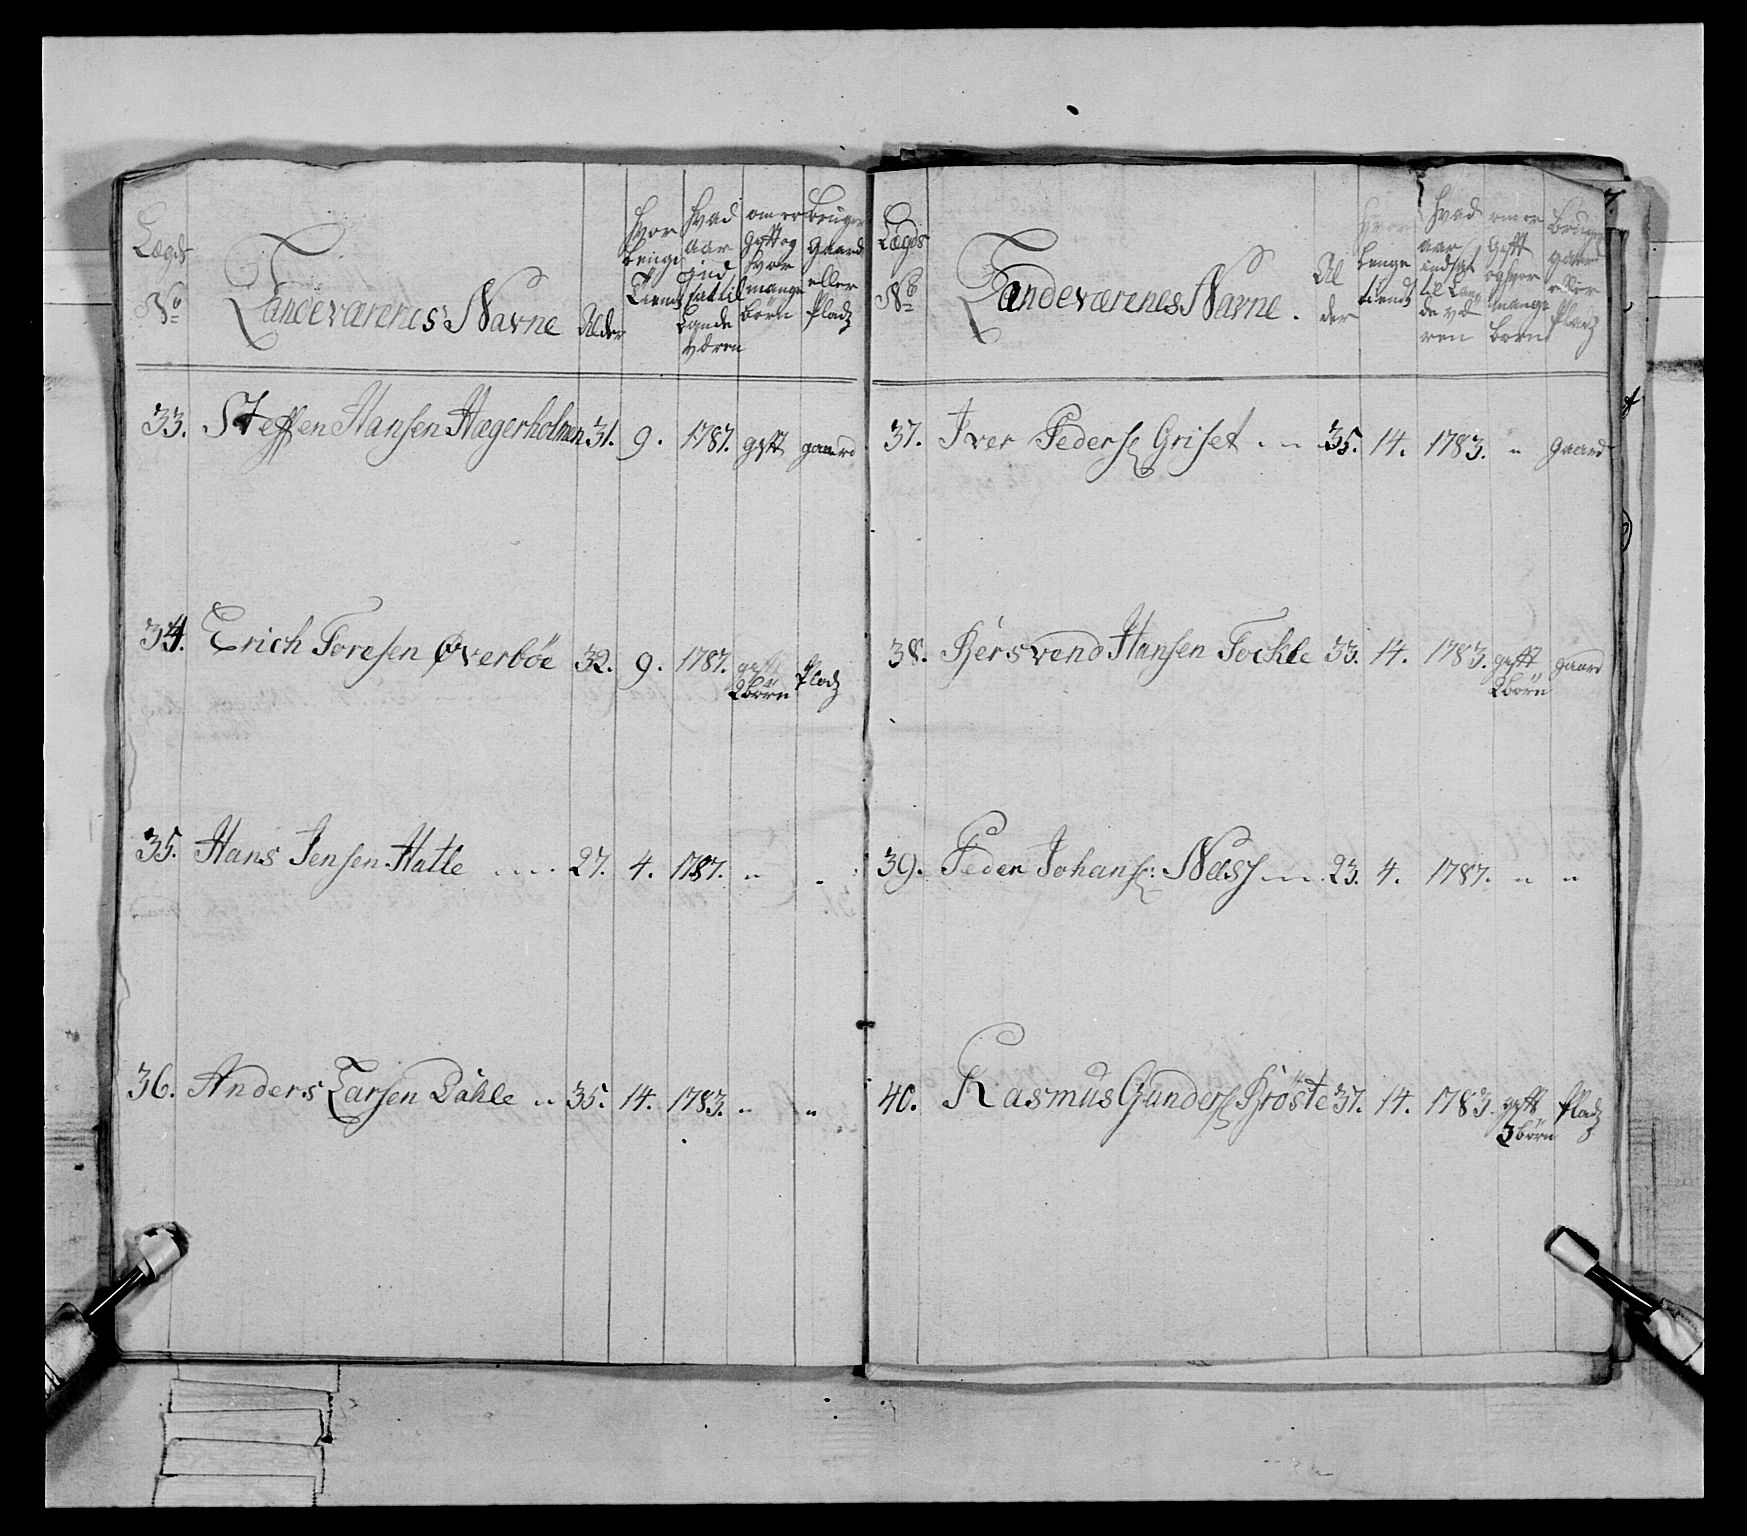 Lægds No
Landeværenes Navne
Alder
Hvor lenge Tient
Hvad aar ind sat til Lande væren
om er gyft og hvor mange børn
bruger gaard eller Pladz
33. Steffen Hansen Hægerholmen 31. 9. 1787. gyft gaard
34. Erich Toresen Øverböe 32. 9. 1787. gyft 2 börn Pladz
35. Hans Jensen Hatle 27. 4. 1787. " "
36. Anders Larsen Dahle " 35. 14. 1783. " "
Lægds No
Landeværenes Navne.
Al der
Hvor lenge tient
Hvad aar indsat til Lan de væ ren
om er gyft og hvor mange børn
bruger gaard eller Pladz
37. Iver Peders: Griset 35. 14. 1783. " gaard
38. Hansen Tockle 33. 14. 1783. gyft 2 börn gaard
39. Peder Johans: Næss 23. 4. 1787. " "
40. Rasmus Gunders: 37. 14. 1783. gyft 3 börn Pladz